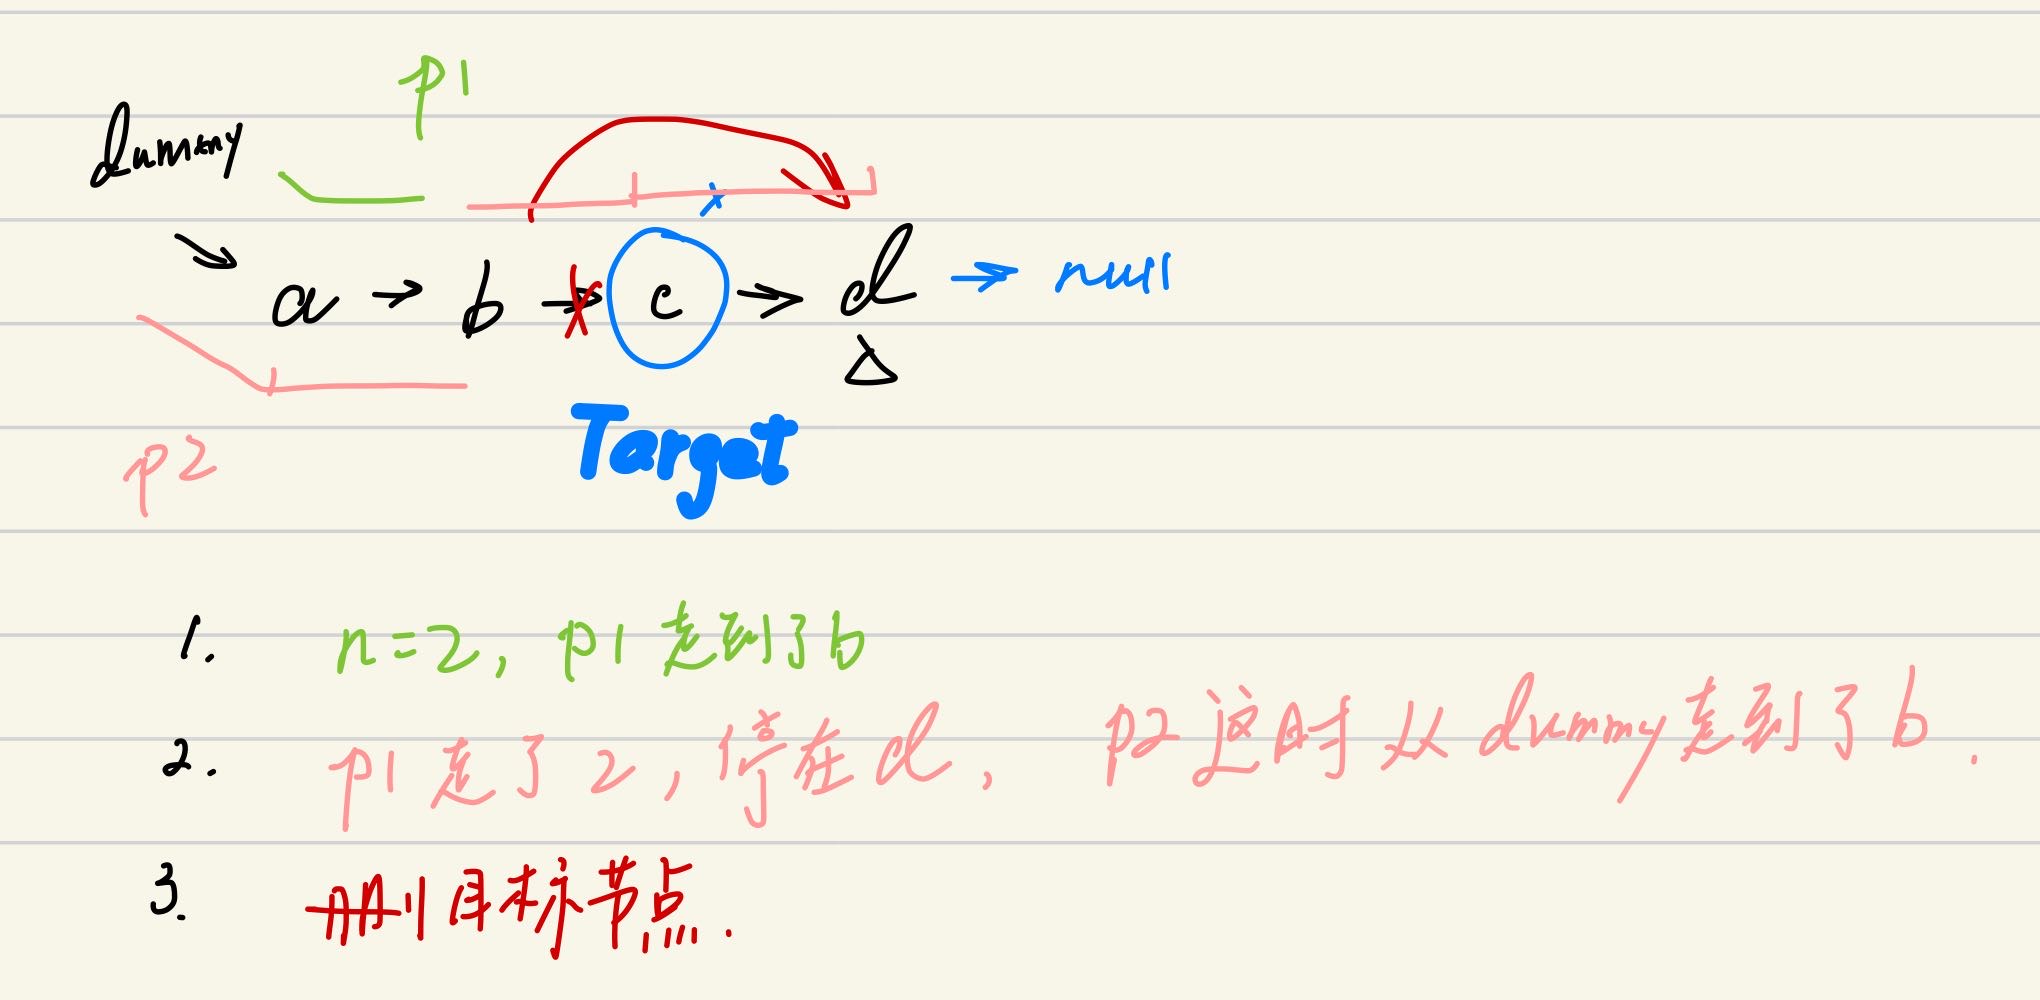 p1
dummy
a → b → c → d → null
Target
p2
1. n=2, p1走到了b
2. p1走了2,停在d, p2这时从dummy走到了b.
3. 删目标节点.